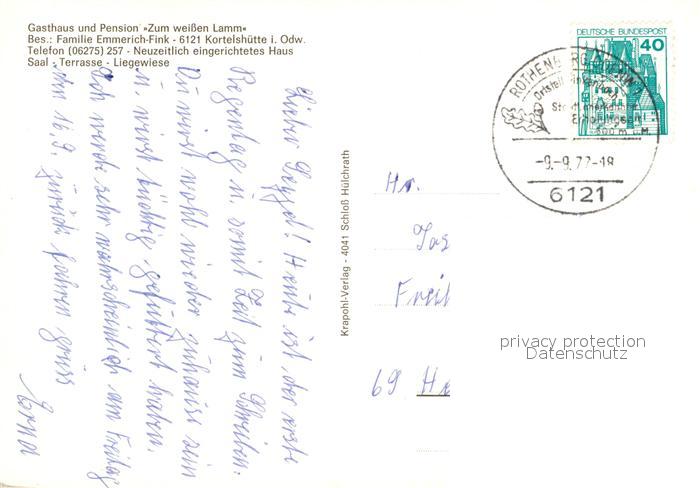 Gasthaus und Pension »Zum weißen Lamm«
Bes.: Familie Emmerich-Fink - 6121 Kortelshütte i. Odw.
Telefon (06275) 257 - Neuzeitlich eingerichtetes Haus
Saal - Terrasse - Liegewiese
Heute ist der erste
Regentag u. somit Zeit zum Schreiben.
Du wirst wohl wieder zuhause sein
u. wirst tüchtig gefüttert haben.
Ich werde sehr wahrscheinlich am Freitag
den 16.9. zurück fahren
Erna
Krapohl-Verlag - 4041 Schloß Hülchrath
DEUTSCHE BUNDESPOST
40
ROTHENBERG
600 m ü.M.
-9.-9.77-18
6121
Hr.
69 He
privacy protection
Datenschutz